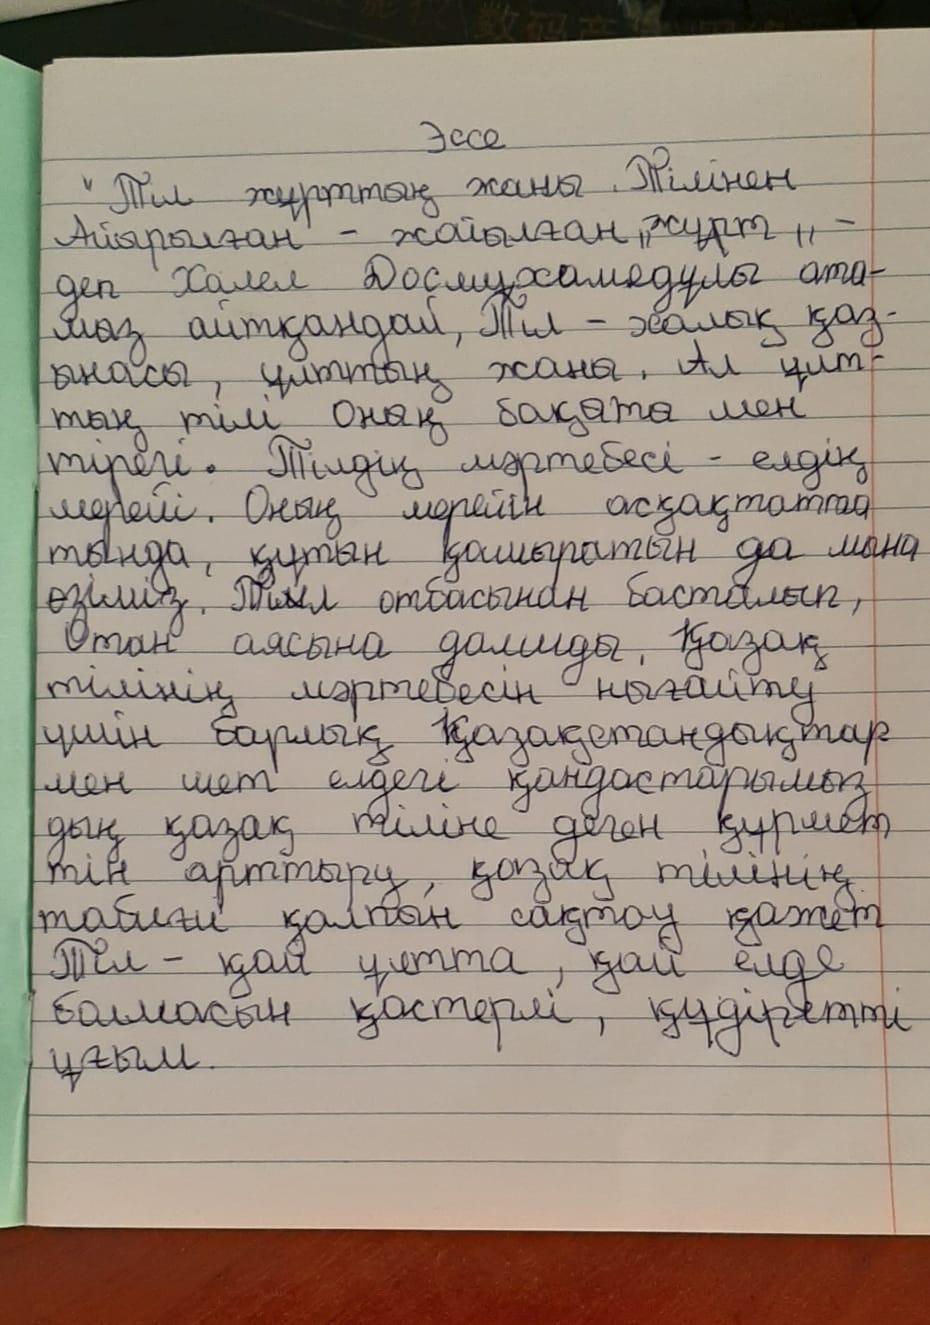 数码产
Эссе
"Тіл жұрттың жаны. Тілінен
Айырылған - жойылған „жұрт„ -
деп Халел Досмұхамедұлы ата-
мыз айтқандай, Тіл - халық қаз-
ынасы, ұлттың жаны. Ал ұлт-
тың тілі оның бақыты мен
тірегі. Тілдің мәртебесі - елдің
мерейі. Оның мерейін асқақтатта
тында, құтын қашыратын да мына
өзіміз. Тіл отбасынан басталып,
Отан аясына далиды. Қазақ
тілінің мәртебесін нығайту
үшін барлық Қазақстандықтар
мен шет елдегі қандастарымыз
дың қазақ тіліне деген құрмет
тін арттыру, қазақ тілінің
табиғи қалпын сақтау қажет
Тіл - қай ұлтта, қай елде
болмасын қастерлі, құдіретті
ұғым.